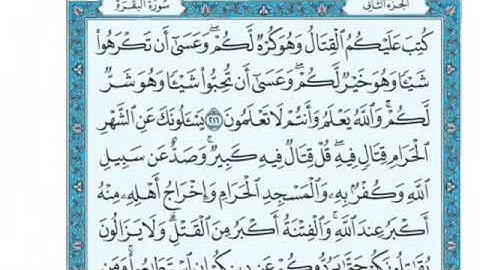 الجزء الثاني
سورة البقرة
كُتِبَ عَلَيْكُمُ ٱلْقِتَالُ وَهُوَ كُرْهٌ لَّكُمْ ۖ وَعَسَىٰٓ أَن تَكْرَهُوا۟
شَيْـًٔا وَهُوَ خَيْرٌ لَّكُمْ ۖ وَعَسَىٰٓ أَن تُحِبُّوا۟ شَيْـًٔا وَهُوَ شَرٌّ
لَّكُمْ ۗ وَٱللَّهُ يَعْلَمُ وَأَنتُمْ لَا تَعْلَمُونَ ٢١٦ يَسْـَٔلُونَكَ عَنِ ٱلشَّهْرِ
ٱلْحَرَامِ قِتَالٍ فِيهِ ۖ قُلْ قِتَالٌ فِيهِ كَبِيرٌ ۖ وَصَدٌّ عَن سَبِيلِ
ٱللَّهِ وَكُفْرٌۢ بِهِۦ وَٱلْمَسْجِدِ ٱلْحَرَامِ وَإِخْرَاجُ أَهْلِهِۦ مِنْهُ
أَكْبَرُ عِندَ ٱللَّهِ ۚ وَٱلْفِتْنَةُ أَكْبَرُ مِنَ ٱلْقَتْلِ ۗ وَلَا يَزَالُونَ
يُقَٰتِلُونَكُمْ حَتَّىٰ يَرُدُّوكُمْ عَن دِينِكُمْ إِنِ ٱسْتَطَٰعُوا۟ ۚ وَمَن